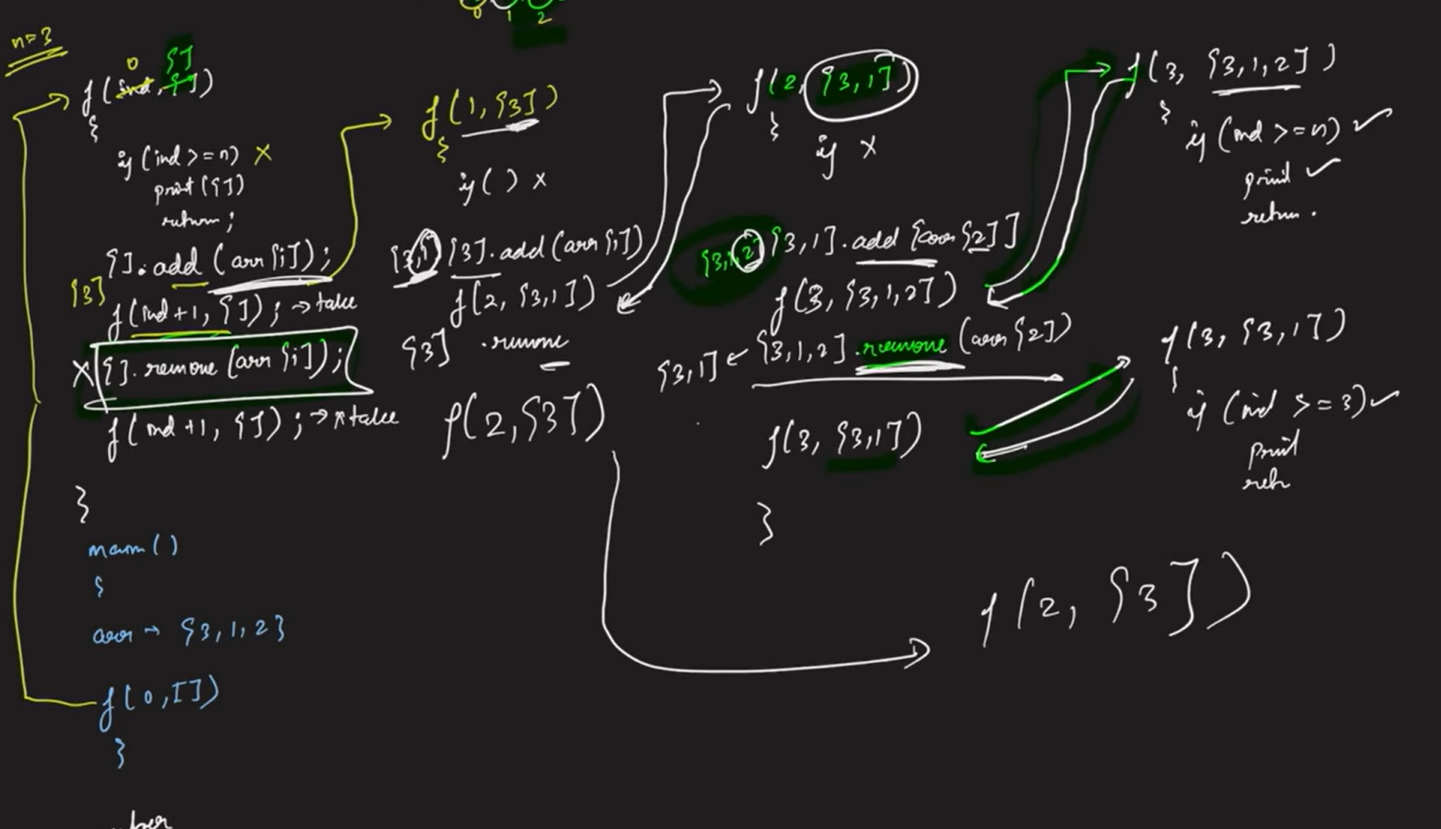 0 1 2
n=3
f(ind, []) 0 []
{
if (ind >= n) X
print([])
return;
[].add(arr[i]);
[3]
f(ind+1, []); → take
X [].remove(arr[i]);
f(ind+1, []); → x take
}
main()
{
arr → {3,1,2}
f(0,[])
}
f(1,[3])
{
if() x
[3,1] [3].add(arr[i])
f(2,[3,1])
[3] .remove
f(2,[3])
f(2,[3,1])
{
if x
[3,1,2] [3,1].add[arr[2]]
f(3,[3,1,2])
[3,1] ← [3,1,2].remove(arr[2])
f(3,[3,1])
}
f(3, [3,1,2])
{
if (ind >= n) ✓
print ✓
return.
f(3,[3,1])
{
if (ind >= 3) ✓
print
retn
f(2, [3])